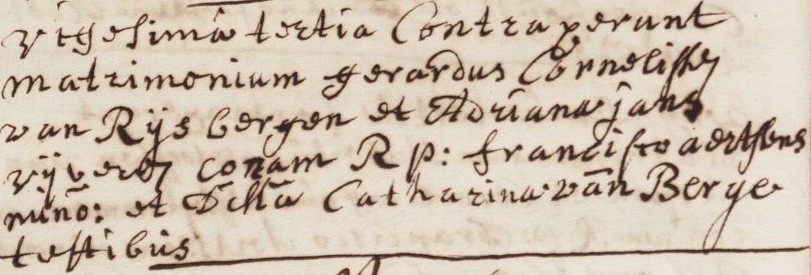 vigesimâ tertia Contraxerunt
matrimonium Gerardus Cornelissen
van Rijsbergen et Adriana jans
vijvers coram R p: francisco aertsens
et Catharina van Berge
testibus